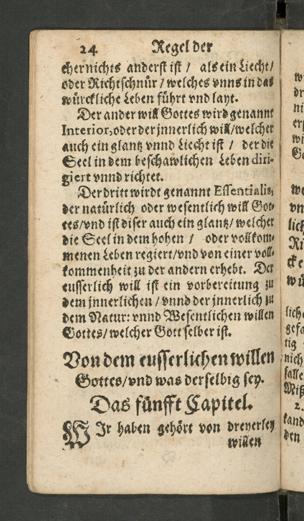 24 Regel der
cher nichts anderst ist / als ein Liecht /
oder Richtschnůr / welches vnns in das
würckliche Leben führt vnd layt.
Der ander will Gottes wird genannt
Interior, oder der jnnerlich will / welcher
auch ein glantz vnnd Liecht ist / der die
Seel in dem beschawlichen Leben diri-
giert vnnd richtet.
Der dritt wirdt genannt Essentialis,
der natürlich oder wesentlich will Got-
tes / vnd ist diser auch ein glantz / welcher
die Seel in dem hohen / oder vollkom-
menen Leben regiert / vnd von einer voll-
kommenheit zu der andern erhebt. Der
eusserlich will ist ein vorbereitung zu
dem jnnerlichen / vnnd der jnnerlich zu
dem Natur: vnnd Wesentlichen willen
Gottes / welcher Gott selber ist.
Von dem eusserlichen willen
Gottes / vnd was derselbig sey.
Das fünfft Capitel.
WIr haben gehört von dreyerley
willen